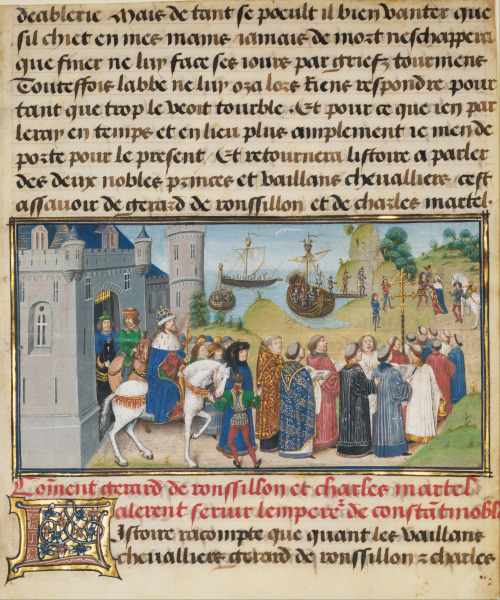 deablerie. Mais de tant se poeult il bien vanter que
sil chiet en mes mains iamais de mort neschappera
que finer ne luy face ses iours par griefz tourmens
Touteffois labbe ne luy oza lors riens respondre pour
tant que trop le veoit tourble. Et pour ce que ien par
leray en temps et en lieu plus amplement ie men de
porte pour le present Et retournera listoire a parler
des deux nobles princes et vaillans chevalliers cest
assavoir de gerard de roussillon et de charles martel.
Coment gerard de roussillon et charles martel
alerent servir lempere de constatinoble
Istoire racompte que quant les vaillans
chevalliers gerard de roussillon z charles